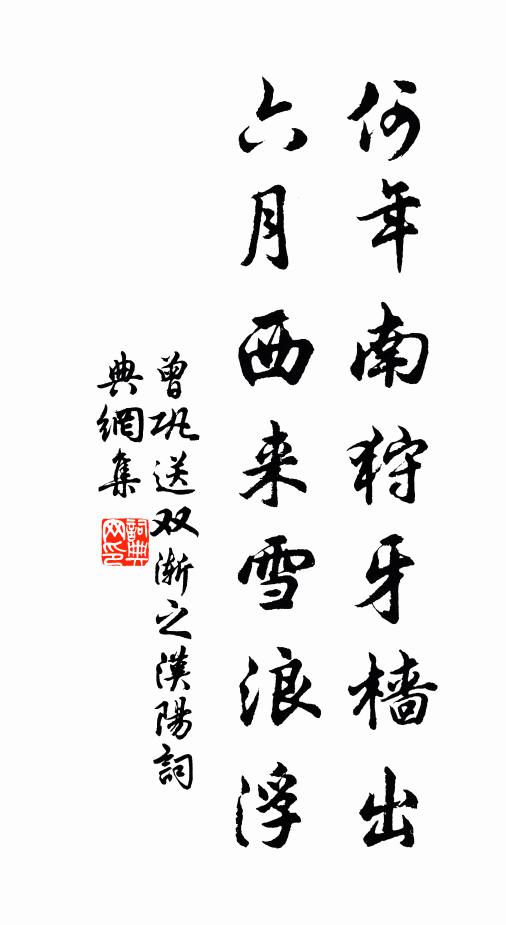 何年南狩牙檣出
六月西来雪浪浮
曾巩送双渐之漢陽詞
典網集
詞典网印